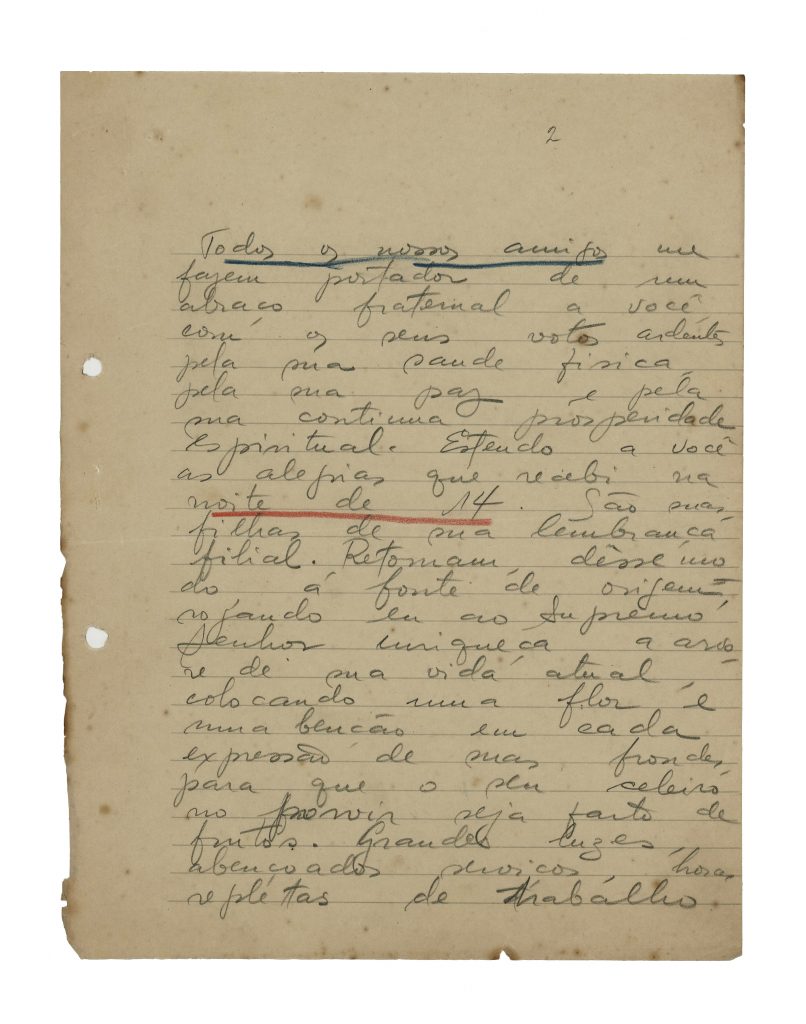 2
Todos os nossos amigos me
fazem portador de um
abraço fraternal a você,
com os seus votos ardentes
pela sua saude fisica,
pela sua paz e pela
sua continua prosperidade
Espiritual. Estendo a você
as alegrias que recebi na
noite de 14. São suas,
filhas de sua lembrança
filial. Retornam, dêsse mo
do á fonte de origem,
rogando eu ao Supremo
Senhor enriqueça a arvo
re de sua vida atual,
colocando uma flor e
uma benção em cada
expressão de suas frondes
para que o seu celeiro
no porvir seja farto de
frutos. Grandes luzes,
abençoados serviços, horas
repletas de trabalho